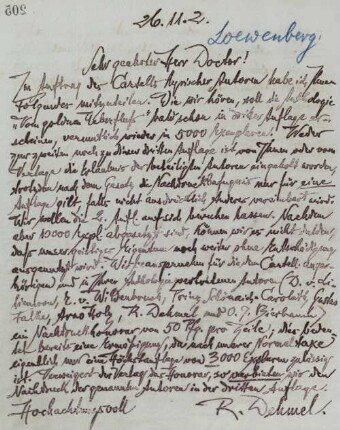 205
26.11.2.
Loewenberg.
Sehr geehrter Herr Doctor!
Im Auftrag des Cartells lyrischer Autoren habe ich Ihnen
Folgendes mitzuteilen. Wie wir hören, soll die Anthologie
„Vom goldnen Ueberfluss“ bald schon in dritter Auflage er-
scheinen, vermutlich wieder in 5000 Exemplaren. Weder
zur zweiten noch zu dieser dritten Auflage ist von Ihnen oder vom
Verlage die Erlaubnis der beteiligten Autoren eingeholt worden,
trotzdem nach dem Gesetz die Nachdruckbefugnis nur für eine
Auflage gilt, falls nicht ausdrücklich Anderes vereinbart wird.
Wir wollen die 2. Aufl. auf sich beruhen lassen. Nachdem
aber 10000 Expl. abgesetzt sind, können wir es nicht dulden,
dass unser geistiges Eigentum noch weiter ohne Entschädigung
ausgenutzt wird. Wir beanspruchen für die dem Cartell ange-
hörigen und in Ihrer Anthologie vertretenen Autoren (D. v. Lili-
encron, E. v. Wildenbruch, Prinz Schönaich-Carolath, Gustav
Falke, Arno Holz, R. Dehmel und O. J. Bierbaum)
ein Nachdruckhonorar von 50 Pfg. pro Zeile; dies bedeu-
tet bereits eine Ermäßigung, da nach unserer Normaltaxe
eigentlich nur eine Höchstauflage von 3000 Exemplaren zulässig
ist. Verweigert der Verlag das Honorar, so verbieten wir den
Nachdruck der genannten Autoren in der dritten Auflage.
Hochachtungsvoll
R. Dehmel.